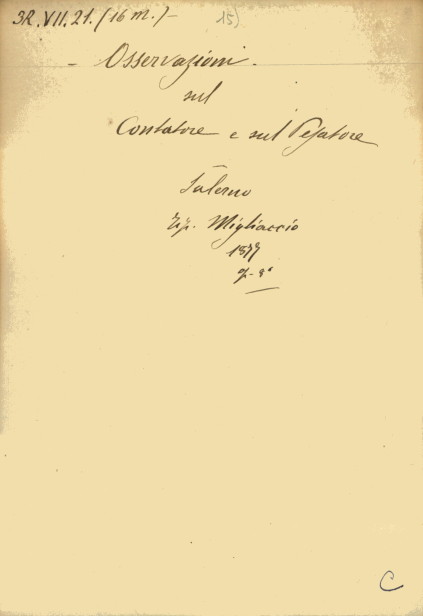 3R.VII.21.(16 m.)- 15)
- Osservazioni.
sul
Contatore e sul Pesatore
Salerno
Tip. Migliaccio
1877
C